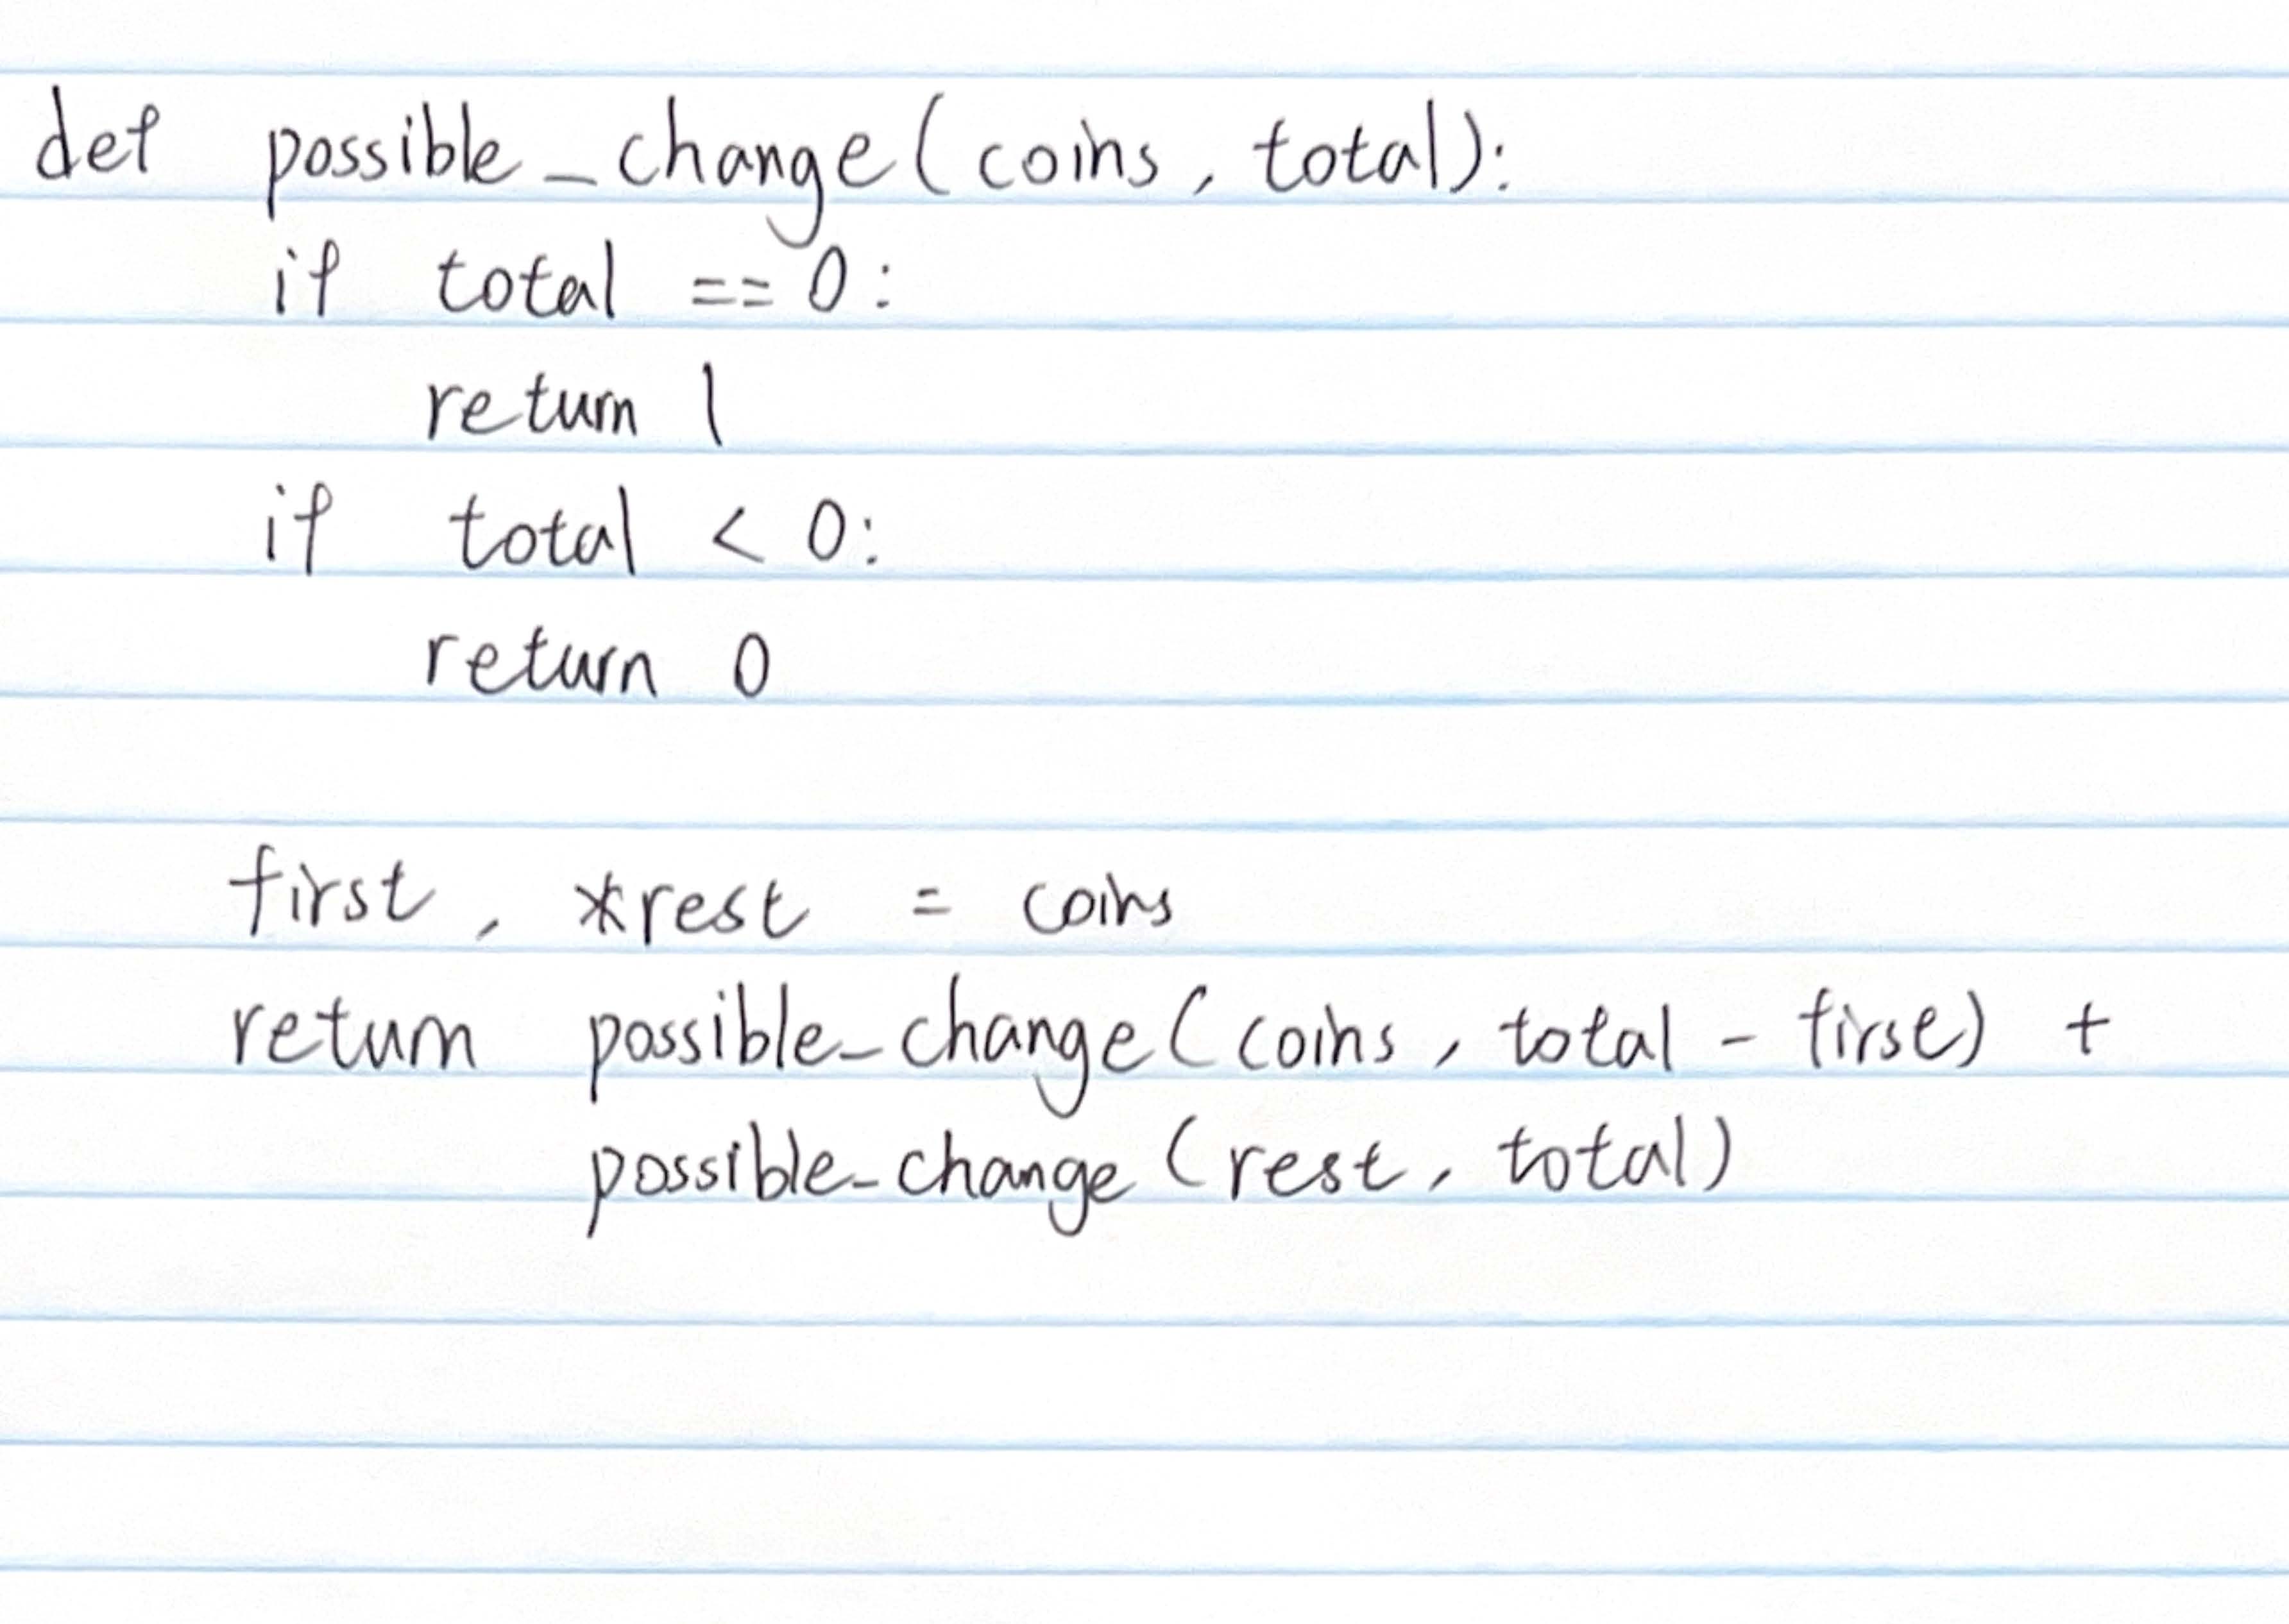 def possible_change(coins, total):
if total == 0:
return 1
if total < 0:
return 0
first, *rest = coins
return possible_change(coins, total - first) +
possible_change(rest, total)